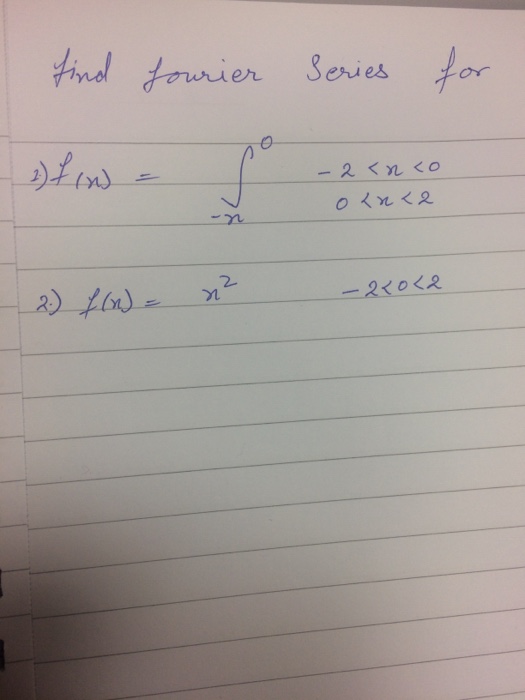 find fourier Series for
1) f(x) = ∫ 0 -2 < x < 0
-x 0 < x < 2
2.) f(x) = x² -2<0<2